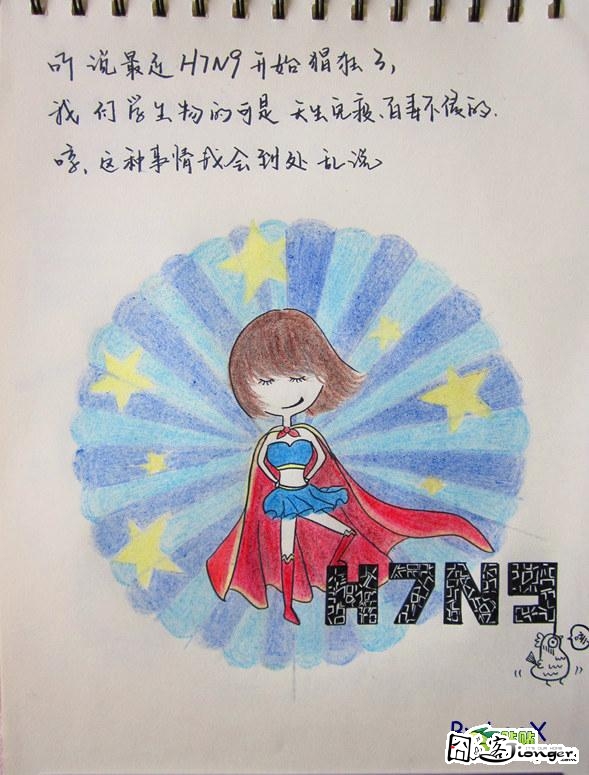 听说最近H7N9开始猖狂了,
我们学生物的可是天生免疫、百毒不侵的.
咳,这种事情我会到处乱说
H7N9
囧客
Jionger.com